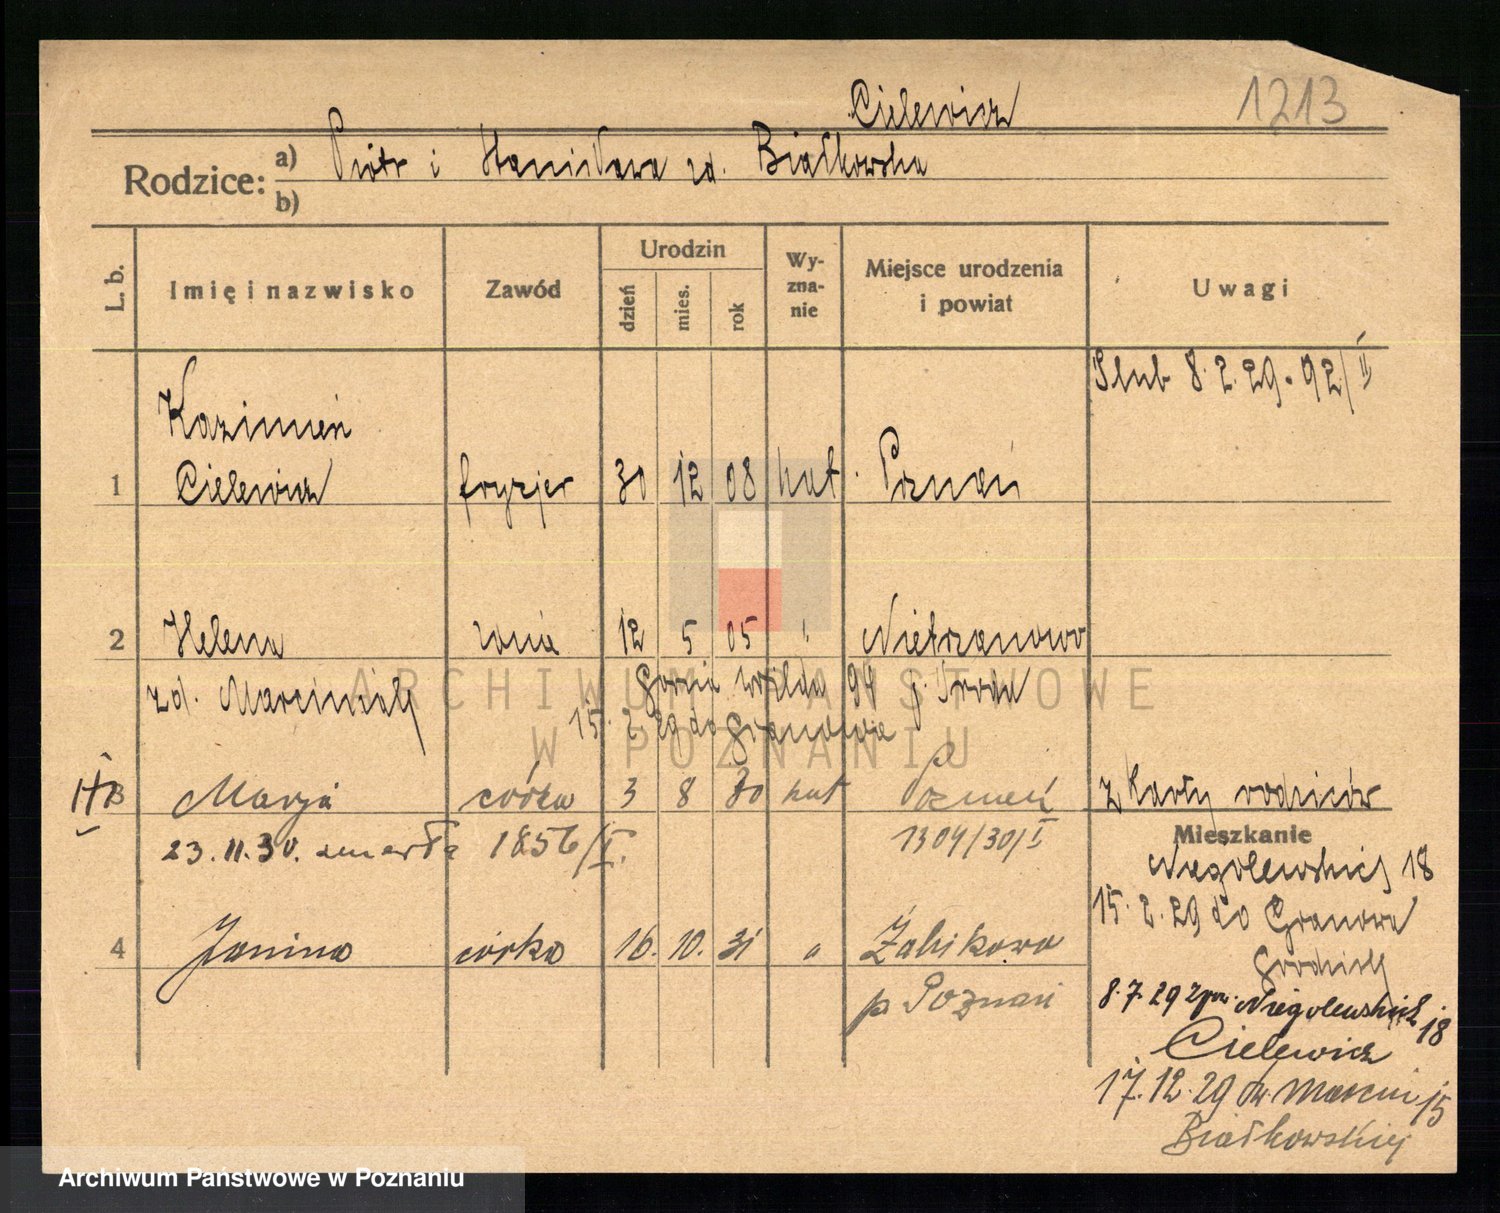 Cielewicz
1213
Rodzice: a) Piotr i Stanisława zd. Białkowska
b)
L. b.
Imię i nazwisko
Zawód
Urodzin
dzień
mies.
rok
Wy-
zna-
nie
Miejsce urodzenia
i powiat
Uwagi
Ślub 8.2.29 - 92/II
Kazimierz
1 Cielewicz fryzjer 30 12 08 kat. Poznań
2 Helena żona 12 5 05 Nietrzanowo
zd. Marciniak Górna Wilda 94 p. Środa
15. 2. 29 do Granowa
Marja córka 3 8 30 kat Poznań z karty rodziców
23.11.30. zmarła 1856/I. 1304/30/I
Mieszkanie
Niegolewskich 18
15. 2. 29 do Granowa
4 Janina córka 16. 10. 31 Żabikowo
p. Poznań
8.7.29 Niegolewskich 18
Cielewicz
17.12.29 św. Marcin 15
Białkowskiej
ARCHIWUM PAŃSTWOWE
W POZNANIU
Archiwum Państwowe w Poznaniu